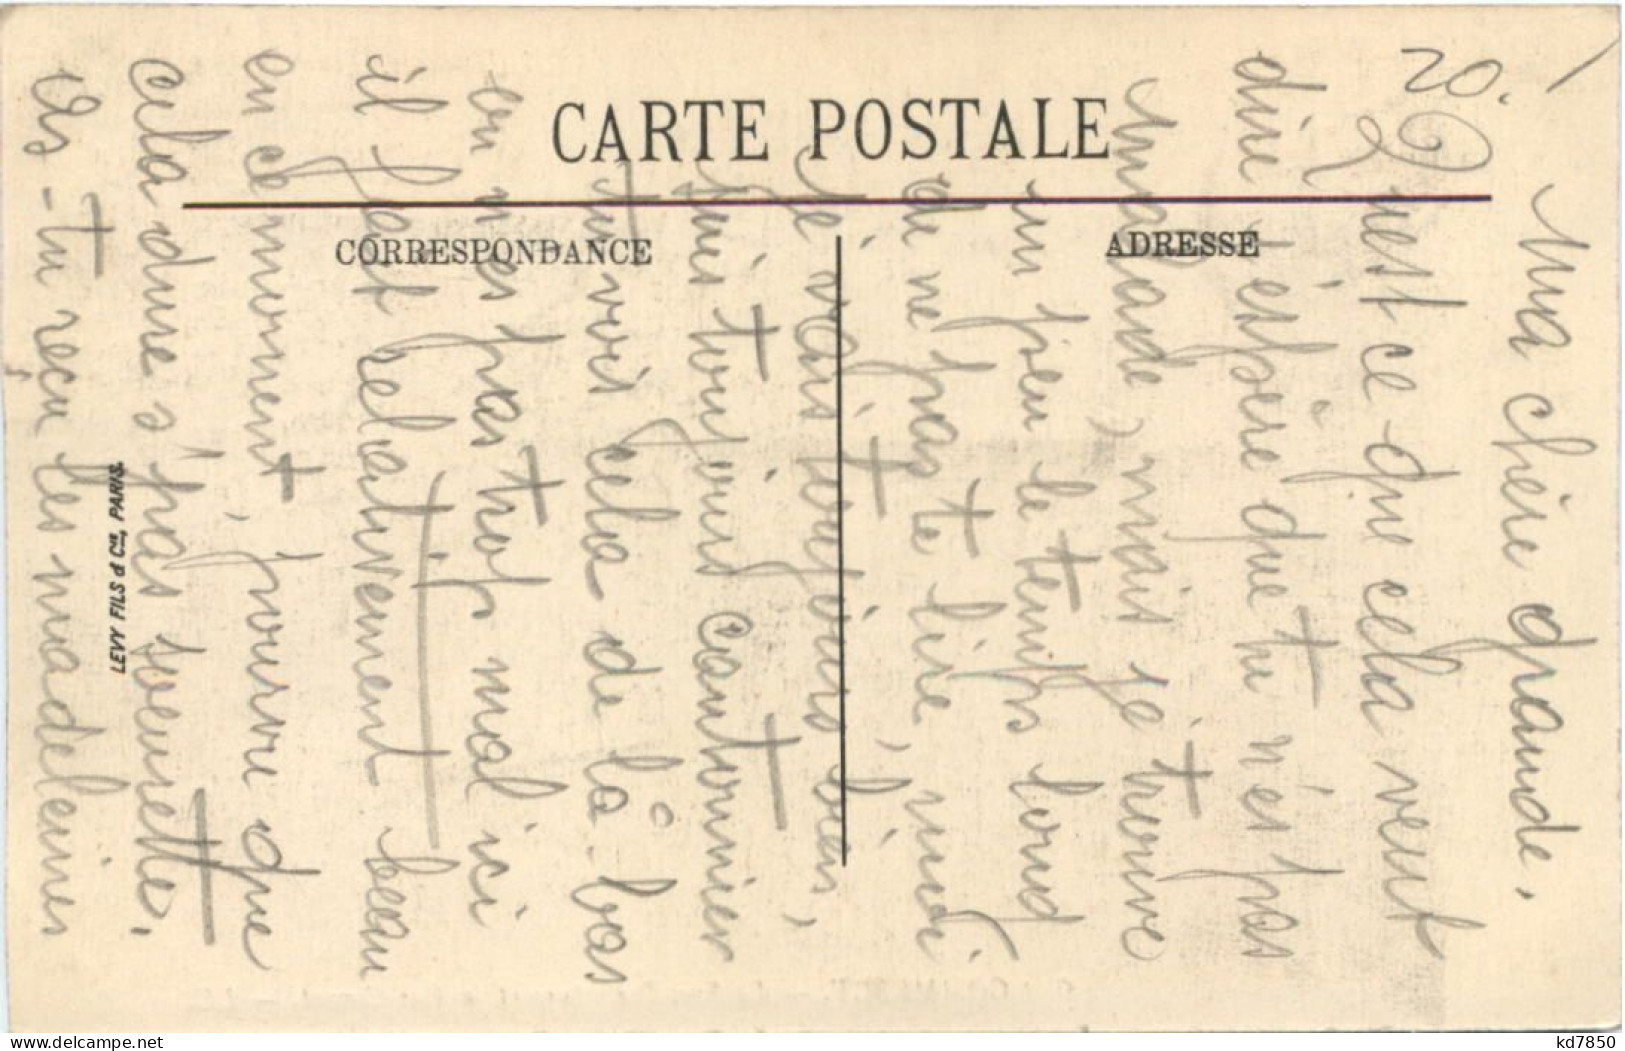 CARTE POSTALE
CORRESPONDANCE
ADRESSE
LEVY FILS & Cie, PARIS.
20.
Ma chère grande.
Quest ce que cela veut
dire j'éspère que tu n'és pas
malade, mais je trouve
un peu le temps lourd
de ne pas te lire, moi
je vais toujours bien,
suis toujours cantonnier
tu vois cela de là-bas
on n'es pas trop mal ici
il fait relativement beau
en ce moment, pourvu que
cela dure s'pas soeurette.
As-tu reçu les madeleines
kd7850